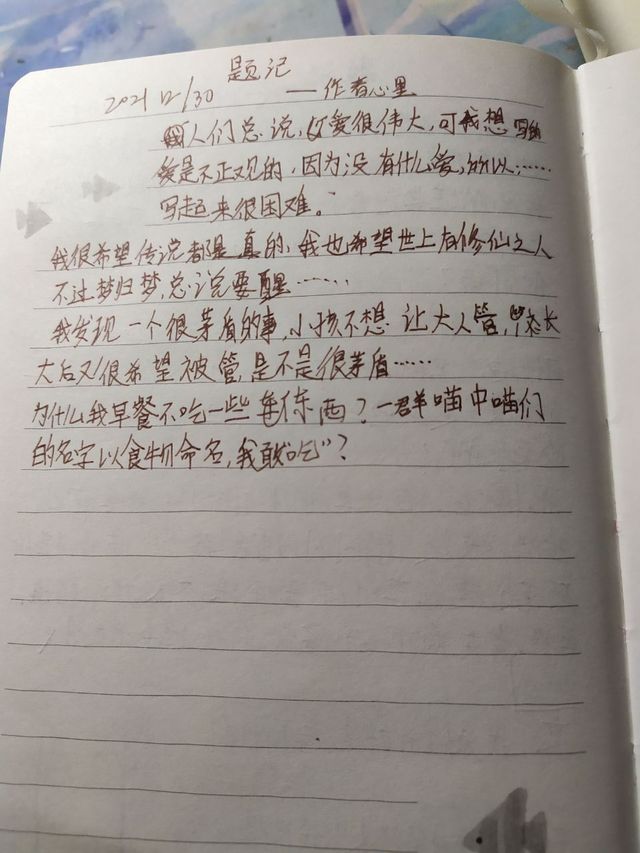 题记
2021 12/30 ——作者心里
人们总说,爱很伟大,可我想写的
爱是不正观的,因为没有什么爱,所以……
写起来很困难。
我很希望传说都是真的,我也希望世上有修仙之人
不过梦归梦,总说要醒……
我发现一个很茅盾的事,小孩不想让大人管,长
大后又很希望被管,是不是很茅盾……
为什么我早餐不吃一些东西?一群喵中喵们
的名字以食物命名,我敢“吃”?